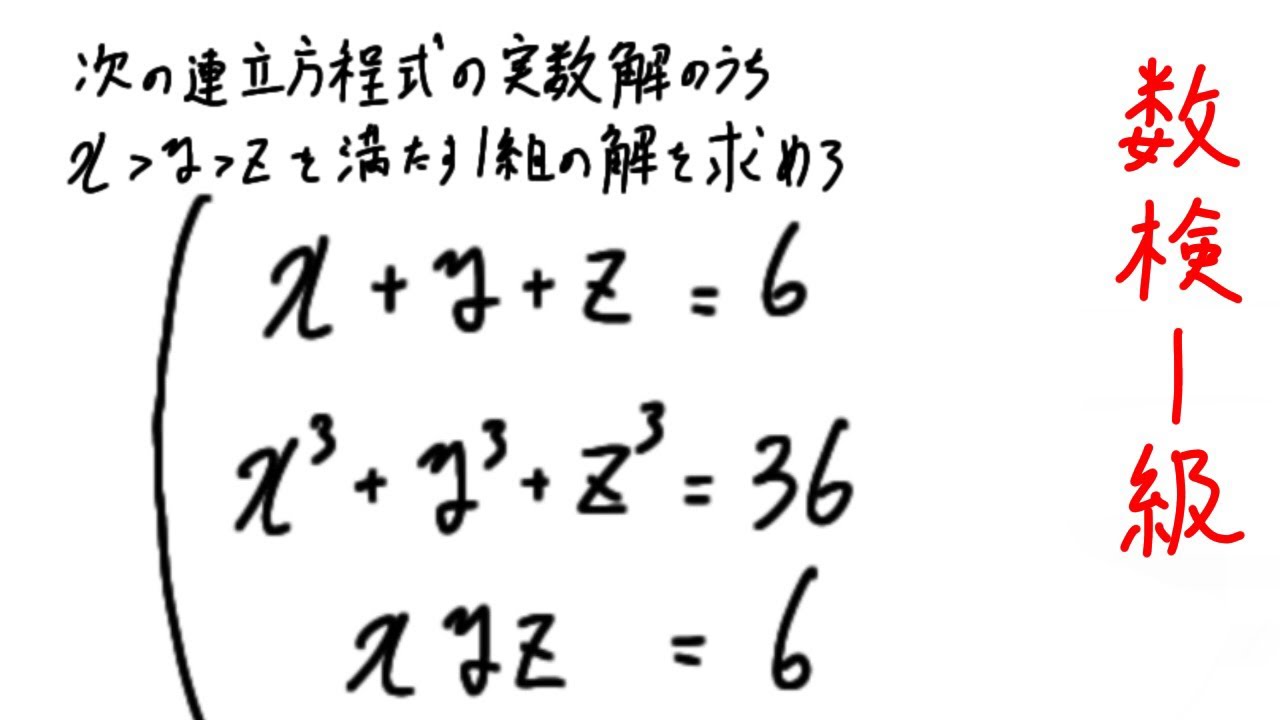 次の連立方程式の実数解のうち
x>y>zを満たす1組の解を求めろ
x+y+z=6
x³+y³+z³=36
xyz=6
数検1級